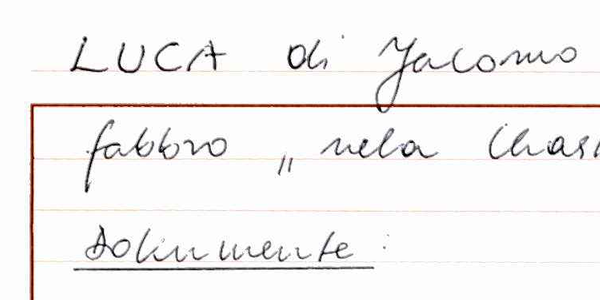 LUCA di Jacomo
fabbro „ nela Chas
Dokumente: